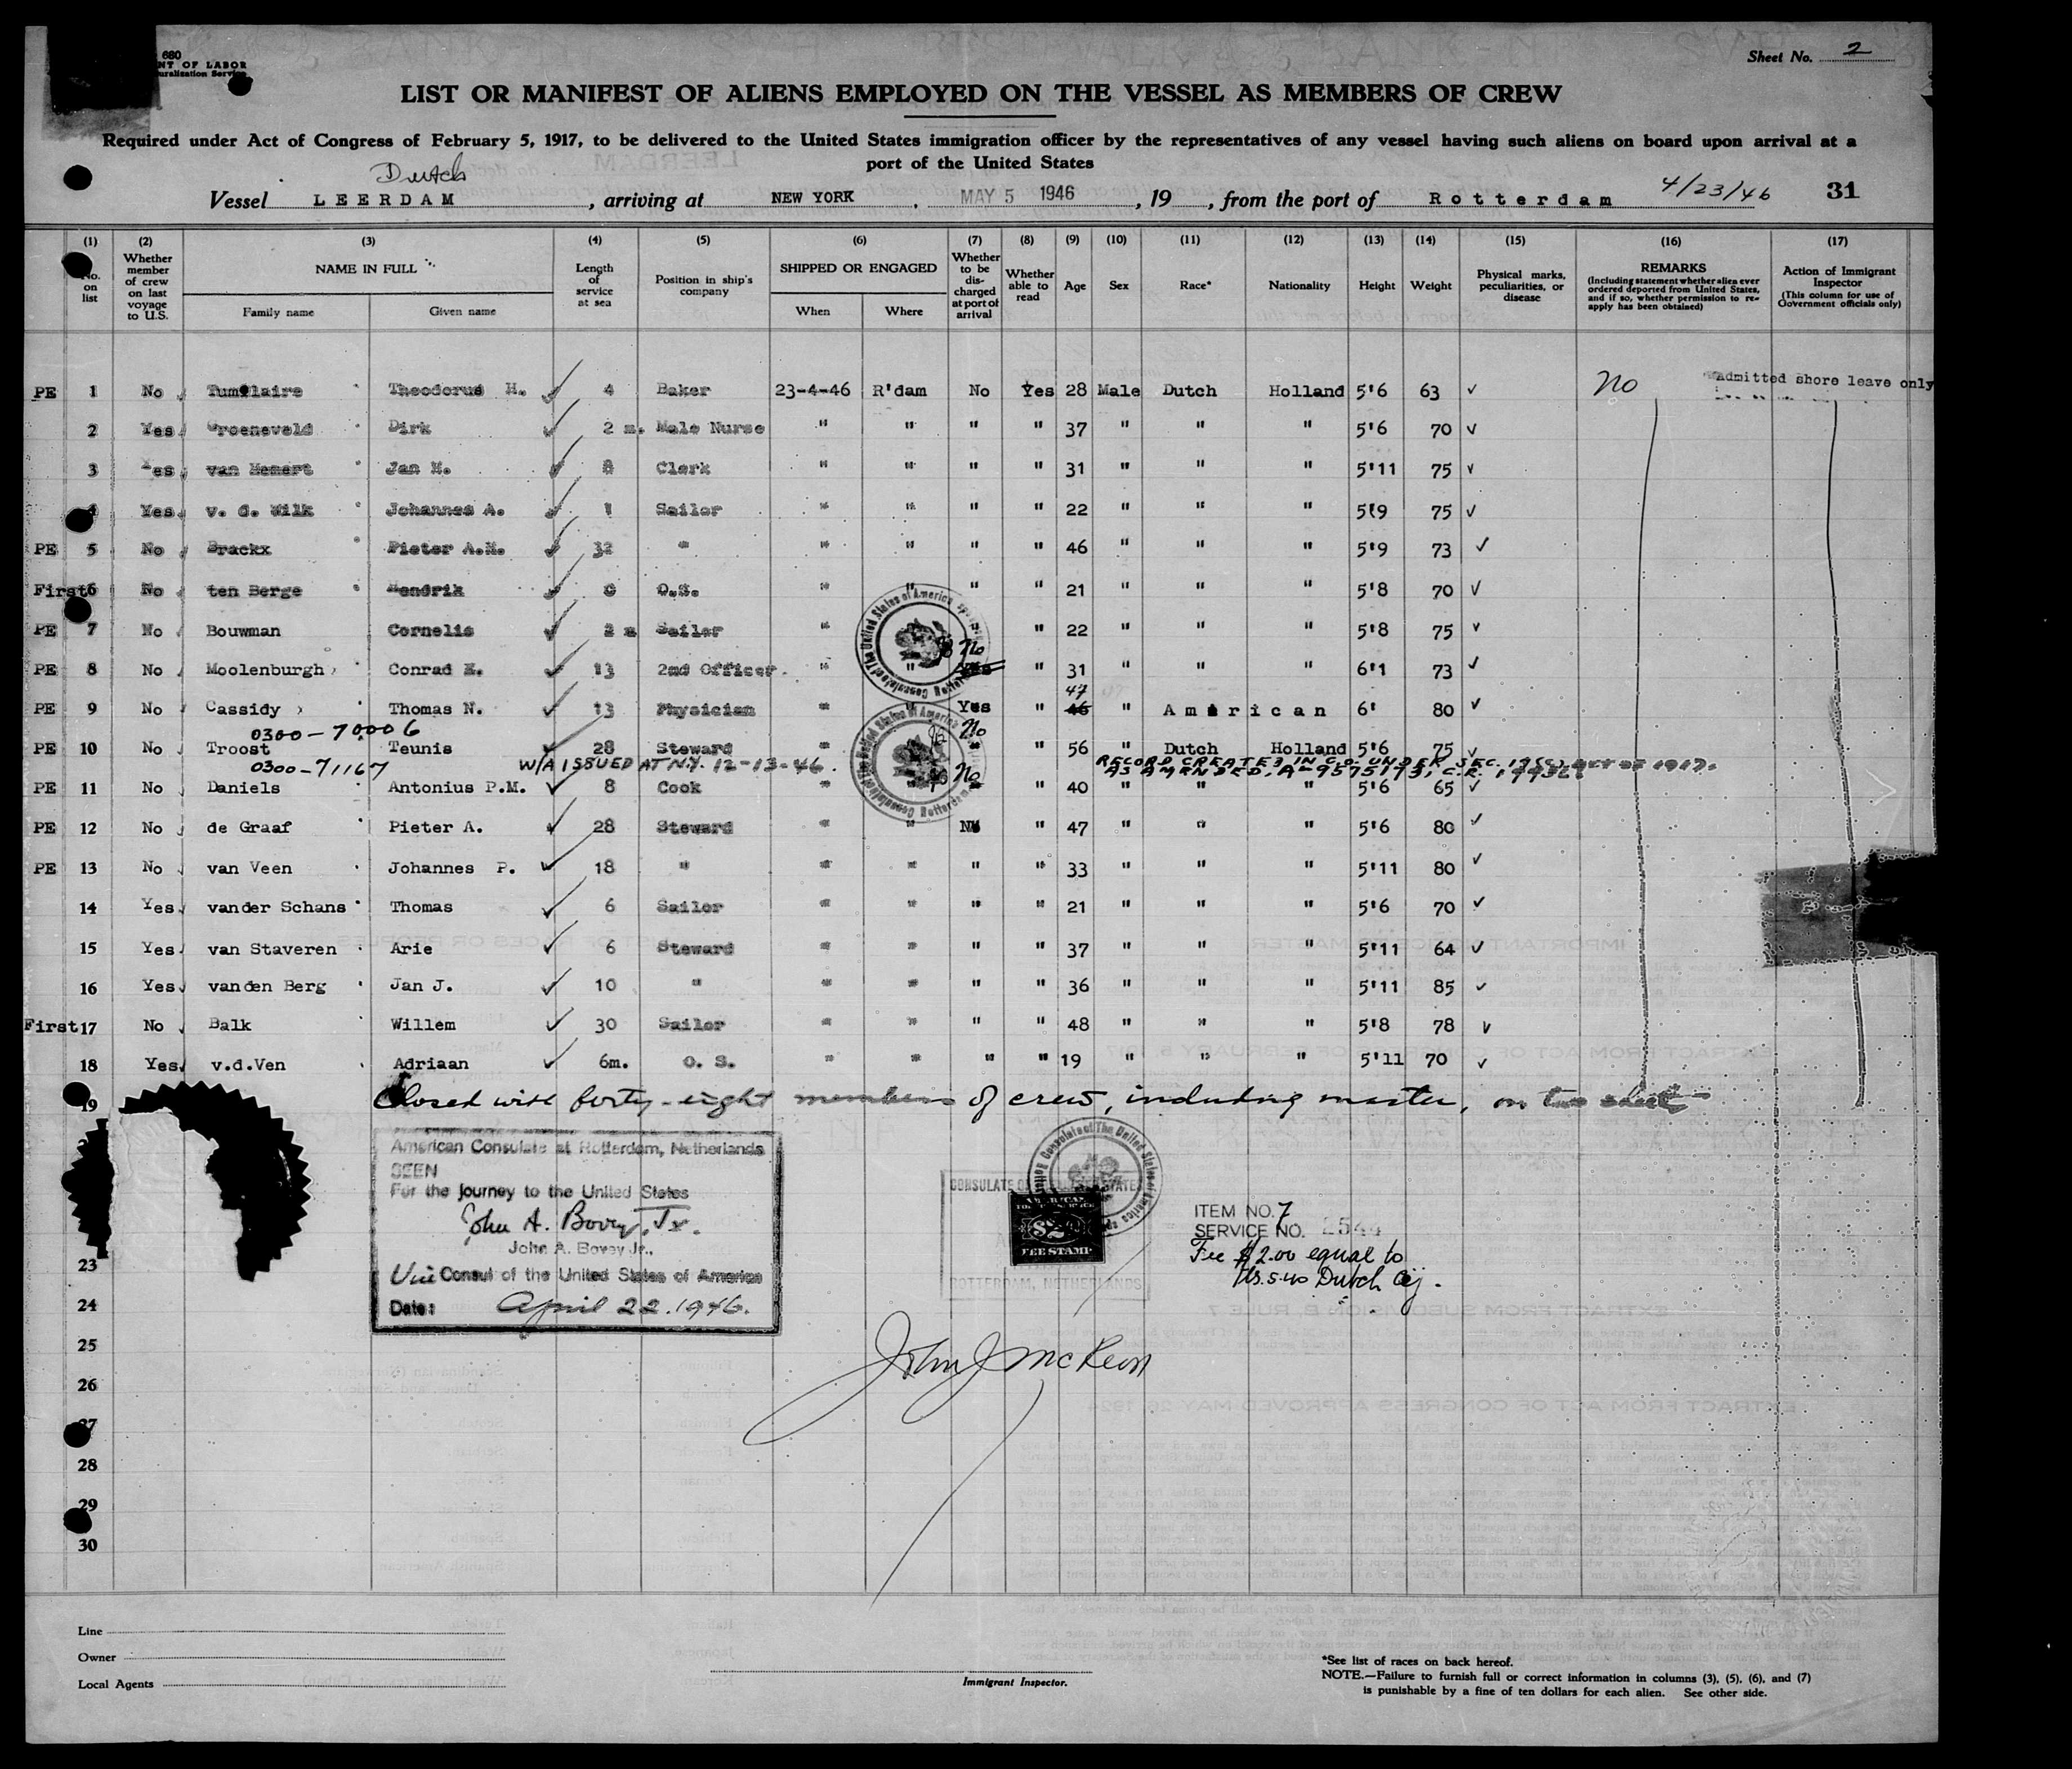 680
NT OF LABOR
uralization Service
Sheet No. 2
LIST OR MANIFEST OF ALIENS EMPLOYED ON THE VESSEL AS MEMBERS OF CREW
Required under Act of Congress of February 5, 1917, to be delivered to the United States immigration officer by the representatives of any vessel having such aliens on board upon arrival at a
port of the United States
Dutch
Vessel LEERDAM, arriving at NEW YORK, MAY 5 1946, 19 , from the port of Rotterdam 4/23/46 31
(1) (2) (3) (4) (5) (6) (7) (8) (9) (10) (11) (12) (13) (14) (15) (16) (17)
No. on list
Whether member of crew on last voyage to U.S.
NAME IN FULL
Family name Given name
Length of service at sea
Position in ship's company
SHIPPED OR ENGAGED
When Where
Whether to be discharged at port of arrival
Whether able to read
Age Sex Race* Nationality Height Weight
Physical marks, peculiarities, or disease
REMARKS
(Including statement whether alien ever ordered deported from United States, and if so, whether permission to re-apply has been obtained)
Action of Immigrant Inspector
(This column for use of Government officials only)
PE 1 No Theodorus H. 4 Baker 23-4-46 R'dam No Yes 28 Male Dutch Holland 5'6 63 No Admitted shore leave only
2 Yes Groeneveld Dirk 2 m. Male Nurse " " " " 37 " " " 5'6 70
3 Yes van Hemert Jan 8 Clerk " " " " 31 " " " 5'11 75
4 Yes v. d. Wilk Johannes A. 1 Sailor " " " " 22 " " " 5'9 75
PE 5 No Brackx Pieter 32 " " " " " 46 " " " 5'9 73
First 6 No ten Berge Hendrik 0 O.S. " " " " 21 " " " 5'8 70
PE 7 No Bouwman Cornelis 2 m Sailor " " 22 " " " 5'8 75
PE 8 No Moolenburgh Conrad 13 2nd Officer " " No Yes " 31 " " " 6'1 73
47
PE 9 No Cassidy Thomas N. 13 Physician " " Yes " 46 " American 6' 80
0300-70006
PE 10 No Troost Teunis 28 Steward " No " 56 " Dutch Holland 5'6 75
0300-71167 W/A ISSUED AT N.Y. 12-13-46. RECORD CREATED IN C.O. UNDER SEC. 19(C) ACT OF 1917.
AS AMENDED. A-9575173,
PE 11 No Daniels Antonius P.M. 8 Cook " " No " 40 " " " 5'6 65
PE 12 No de Graaf Pieter A. 28 Steward " " No " 47 " " " 5'6 80
PE 13 No van Veen Johannes P. 18 " " " " " 33 " " " 5'11 80
14 Yes vander Schans Thomas 6 Sailor " " " " 21 " " " 5'6 70
15 Yes van Staveren Arie 6 Steward " " " " 37 " " " 5'11 64
16 Yes vanden Berg Jan J. 10 " " " " " 36 " " " 5'11 85
First 17 No Balk Willem 30 Sailor " " " " 48 " " " 5'8 78
18 Yes v.d.Ven Adriaan 6m. O. S. " " " " 19 " " " 5'11 70
19 Closed with forty-eight members of crew, including master, on two sheets
American Consulate at Rotterdam, Netherlands
SEEN
For the Journey to the United States
John A. Bovey, Jr.
John A. Bovey Jr.,
Vice Consul of the United States of America
Date: April 22. 1946.
AMERICAN
$2
FEE STAMP
ROTTERDAM, NETHERLANDS
ITEM NO. 7
SERVICE NO. 2544
Fee $2.00 equal to
23
24
25
26
27
28
29
30
John J McKeon
Line
Owner
Local Agents
Immigrant Inspector.
*See list of races on back hereof.
NOTE.—Failure to furnish full or correct information in columns (3), (5), (6), and (7)
is punishable by a fine of ten dollars for each alien. See other side.